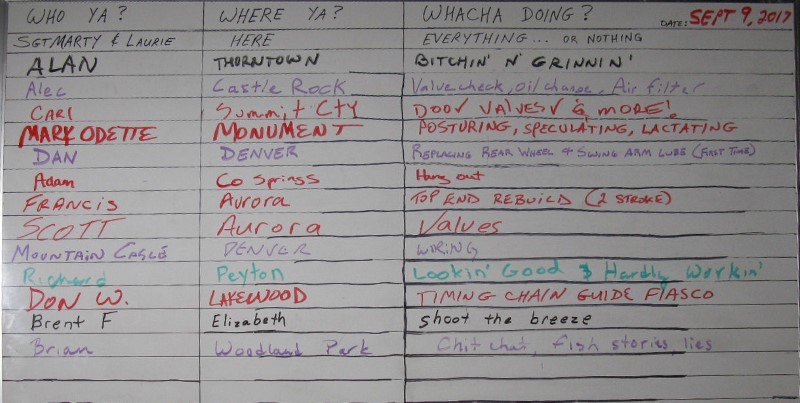 WHO YA? WHERE YA? WHACHA DOING? DATE: SEPT 9, 2017
SGT MARTY & LAURIE HERE EVERYTHING... OR NOTHING
ALAN THORNTOWN BITCHIN' N' GRINNIN'
Alec Castle Rock Valve check, oil change, Air filter
CARI Summit CTY DOOV VALVES & MORE!
MARK ODETTE MONUMENT POSTURING, SPECULATING, LACTATING
DAN DENVER REPLACING REAR WHEEL & SWING ARM LUBE (FIRST TIME)
Adam CO SPRINGS Hang out
FRANCIS AURORA TOP END REBUILD (2 STROKE)
SCOTT AURORA Valves
MOUNTAIN DENVER WIRING
Richard Peyton Lookin' Good & Hardly Workin'
DON W. LAKEWOOD TIMING CHAIN GUIDE FIASCO
Brent F Elizabeth shoot the breeze
Brian Woodland Park Chit chat, fish stories, lies